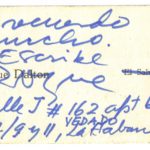 recuerdo
mucho.
Escribe
Roque
que Dalton El Sal
Calle J # 162 apt 6
VEDADO
9 y 11, La Habana